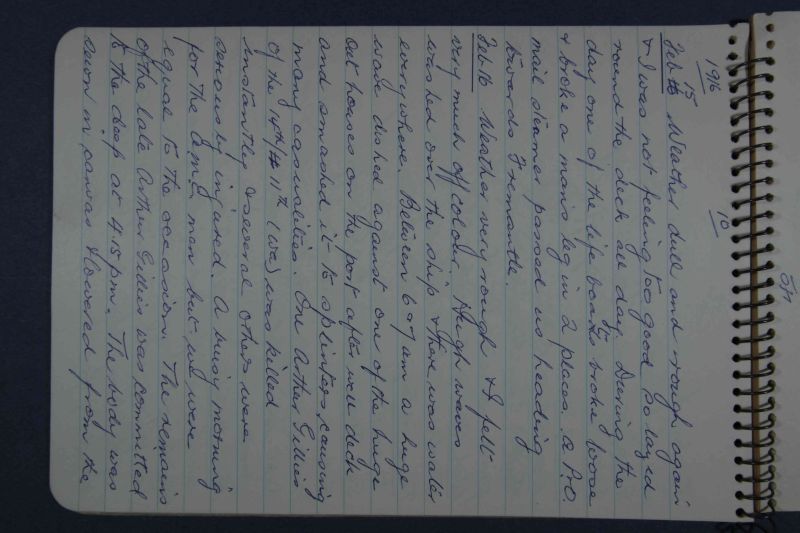 1916
10
Feb 15 Weather dull and rough again
& I was not feeling too good so layed
round the deck all day. During the
day one of the life boats broke loose
& broke a mans leg in 2 places. a P.O.
mail steamer passed us heading
towards Fremantle.
Feb 16 Weather very rough & I felt
very much off colour. Huge waves
washed over the ship & there was water
everywhere. Between 6 & 7 am a huge
wave dished against one of the huge
out houses on the port after well deck
and smashed it to splinters, causing
many casualities. One Arther Gillies
of the 14th/11th (WA) was killed
instantly & several others were
seriously injured. A busy morning
for the A.M.C. men but we were
equal to the occasion. The remains
of the late Arther Gillies was committed
to the deep at 4.15 pm. The body was
sewn in canvas & lowered from the